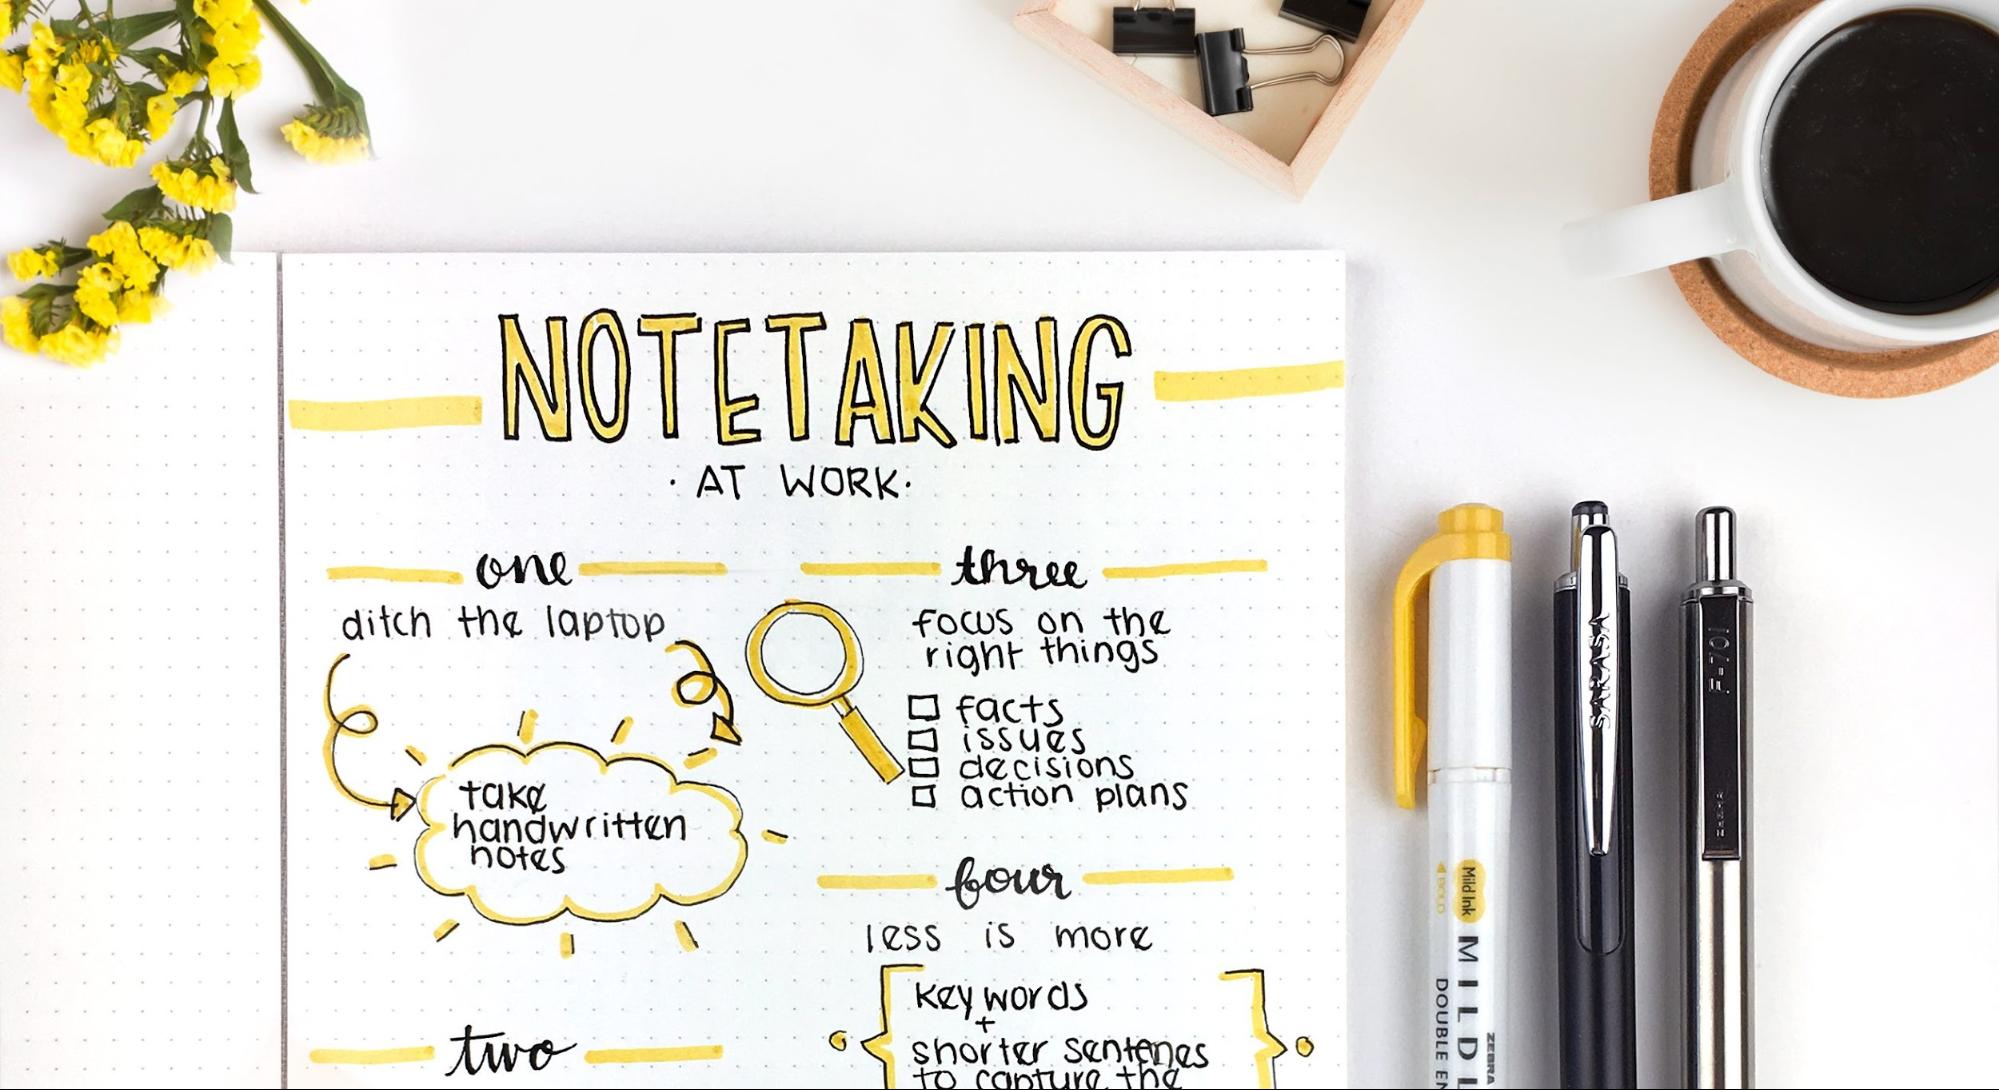 NOTETAKING
· AT WORK ·
one
ditch the laptop
take
handwritten
notes
two
three
focus on the
right things
facts
issues
decisions
action plans
four
less is more
key words
+
shorter sentenes
to capture the
Mild Ink
BOLD
MILDL
DOUBLE EN
ZEBRA
SARASA
F-701
ZEBRA